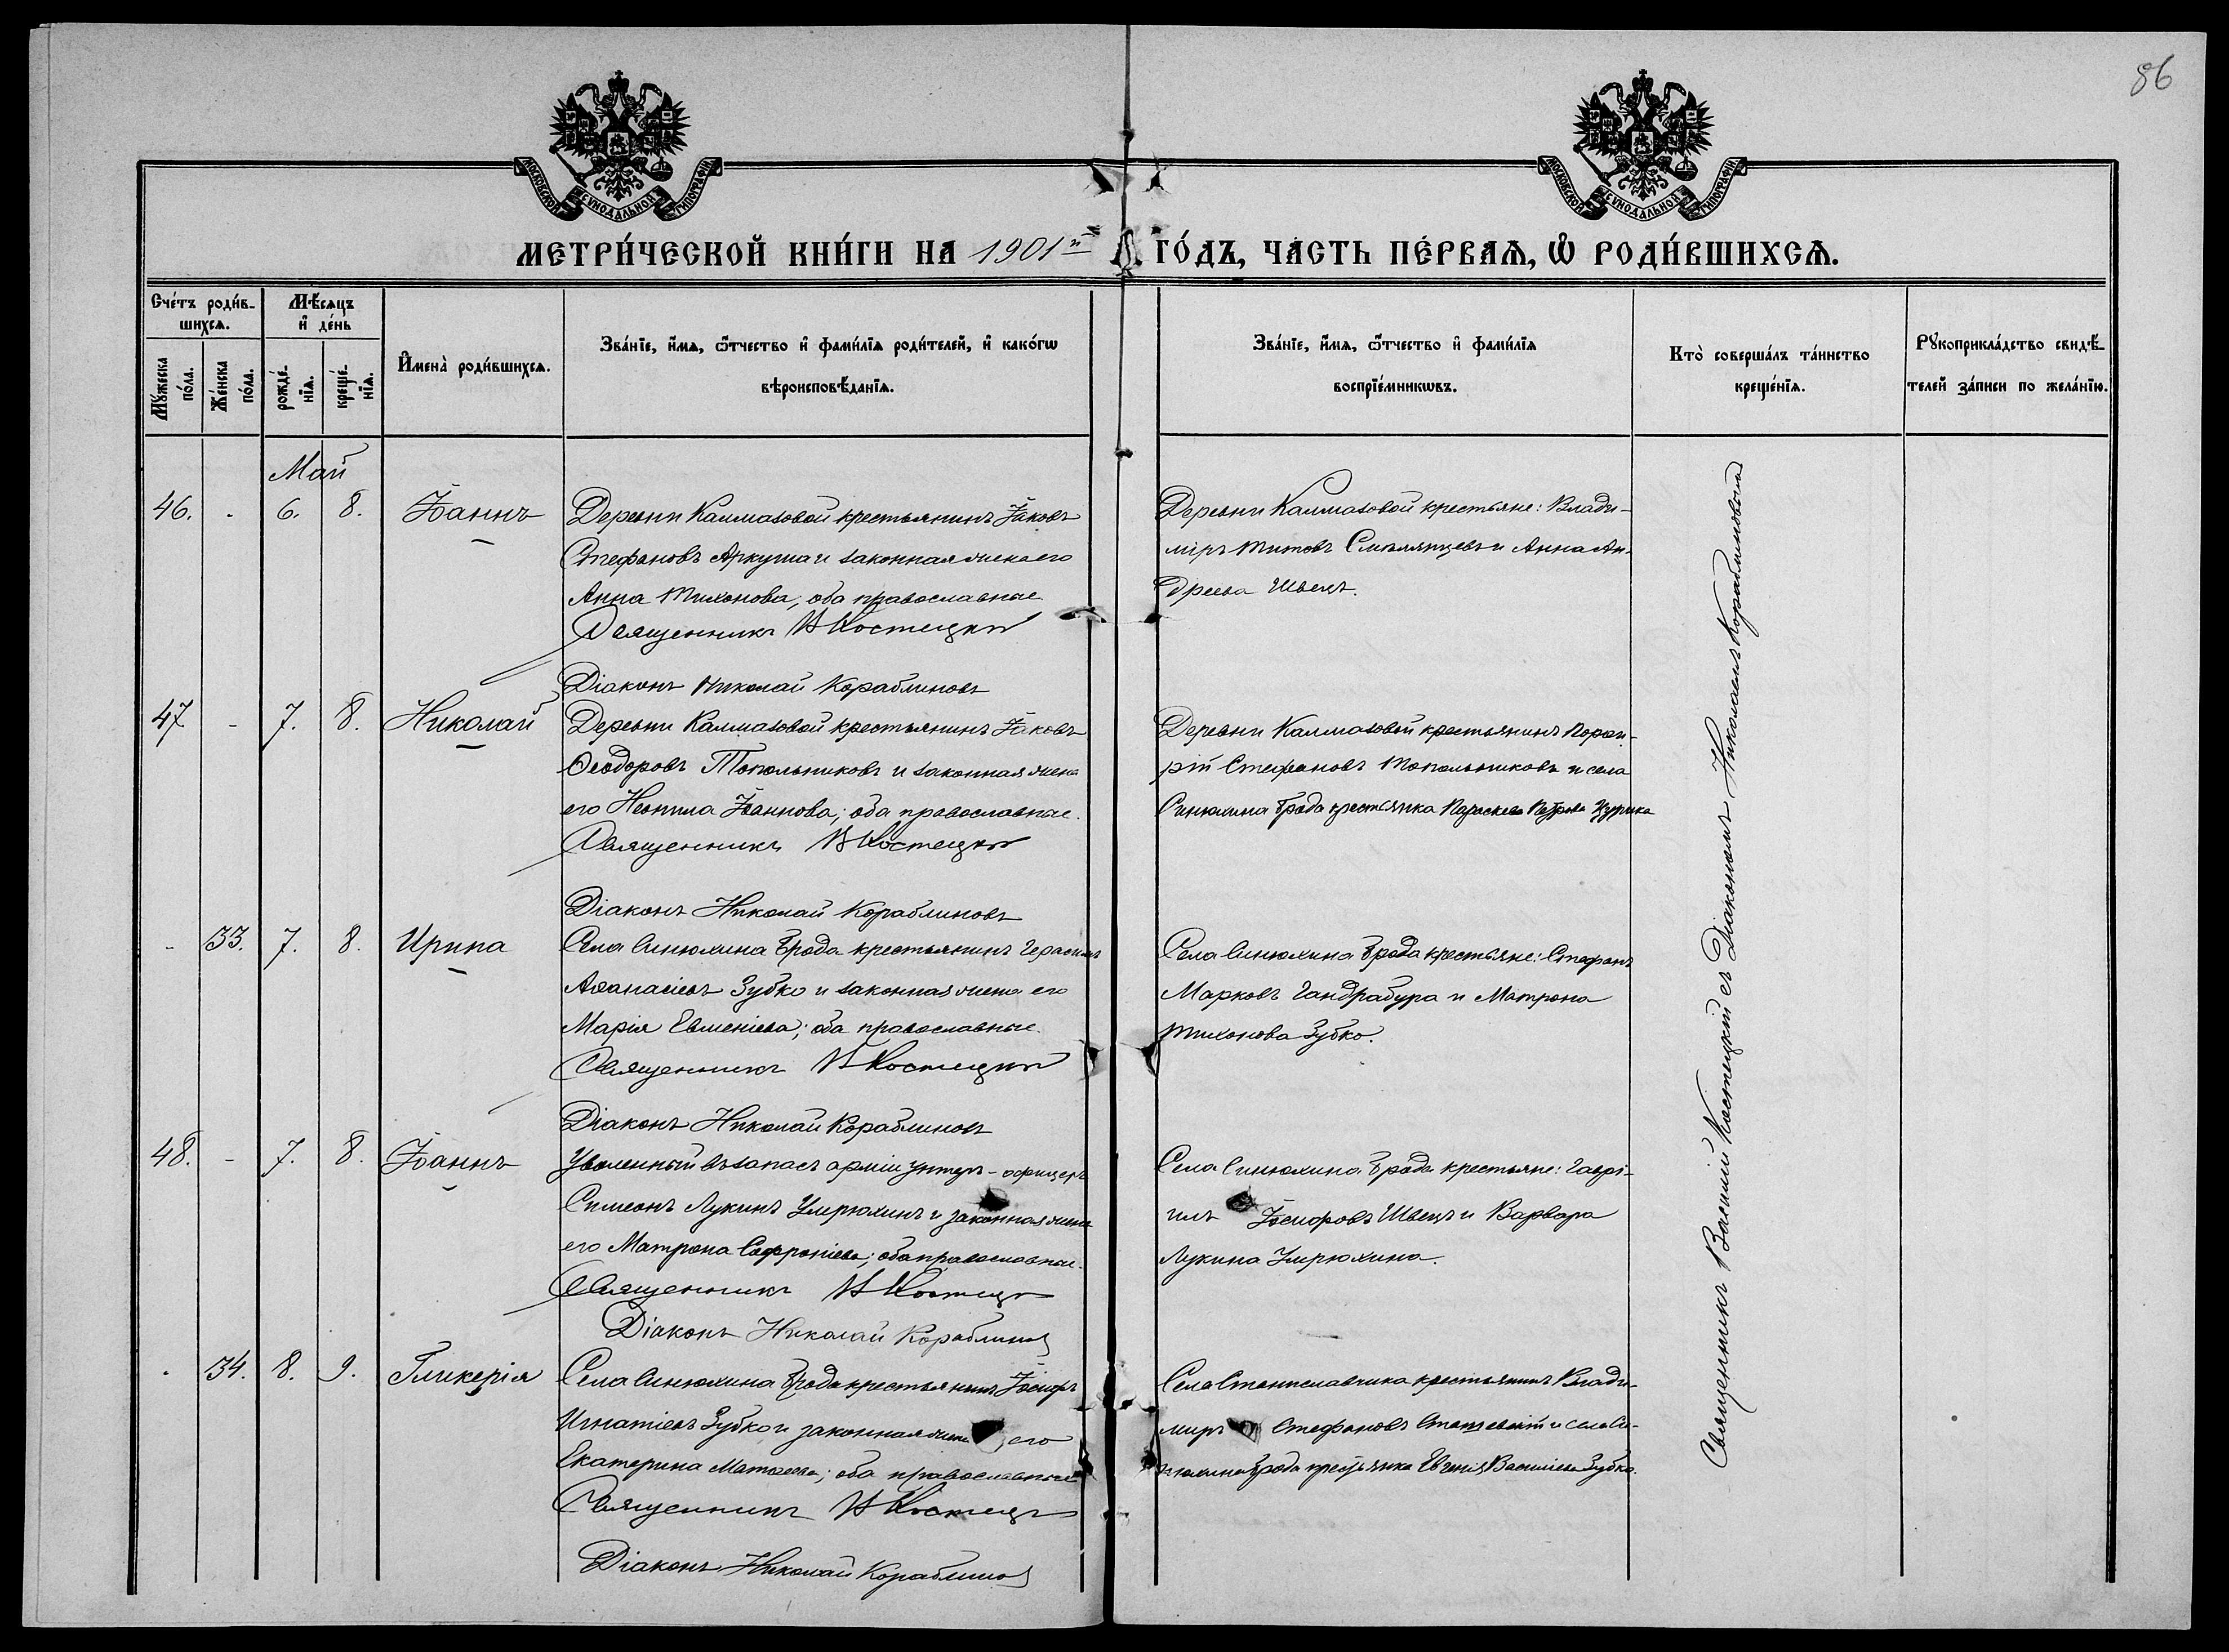 86
МОСКОВСКОЙ СѴНОДАЛЬНОЙ ТИПОГРАФІИ
МОСКОВСКОЙ СѴНОДАЛЬНОЙ ТИПОГРАФІИ
МЕТРИ́ЧЕСКОЙ КНИ́ГИ НА 1901й ГО́ДЪ, ЧА́СТЬ ПЕ́РВАЯ, Ѽ РОДИ́ВШИХСЯ.
Сче́тъ роди́в-
шихся.
Мꙋ́жеска по́ла.
Же́нска по́ла.
Мѣ́сяцъ и҆ де́нь
рожде́-нїя.
креще́-нїя.
И҆мена̀ роди́вшихся.
Зва́нїе, и҆́мя, ѻ҆́тчество и҆ фами́лїя роди́телей, и҆ како́гѡ
вѣроисповѣ́данїя.
Зва́нїе, и҆́мя, ѻ҆́тчество и҆ фами́лїя
воспрїе́мникѡвъ.
Кто̀ соверша́лъ та́инство
креще́нїя.
Рꙋкоприкла́дство свидѣ́-
телей за́писи по жела́нїю.
Май
46. - 6. 8. Іоаннъ Деревни Калмазовой крестьянинъ Іаковъ
Стефановъ Аркуша и законная жена его
Анна Тихонова; оба православные
Священникъ В Костецкій
Діаконъ Николай Кораблиновъ
Деревни Калмазовой крестьяне: Влади-
міръ Титовъ и Анна Ан-
дреева Швецъ.
47 - 7. 8. Николай Деревни Калмазовой крестьянинъ Іаковъ
Ѳеодоровъ Топольниковъ и законная жена
его Неонила Іоаннова; оба православные.
Священникъ В Костецкій
Діаконъ Николай Кораблиновъ
Деревни Калмазовой крестьянинъ Порфи-
рій Стефановъ Топольниковъ и села
Синюхина Брода крестьянка Параскева Петрова
- 33. 7. 8. Ирина Села Синюхина Брода крестьянинъ Герасимъ
Аѳанасіевъ Зубко и законная жена его
Марія Евменіева; оба православные.
Священникъ В Костецкій
Діаконъ Николай Кораблиновъ
Села Синюхина Брода крестьяне: Стефанъ
Марковъ Гандрабура и Матрона
Тихонова Зубко.
48. - 7. 8. Іоаннъ Уволенный въ запасъ арміи унтеръ-офицеръ
Симеонъ Лукинъ Умрюхинъ и законная жена
его Матрона Софроніева; оба православные.
Священникъ В Костецкій
Діаконъ Николай Кораблиновъ
Села Синюхина Брода крестьяне: Гаврі-
илъ Іосифовъ Швецъ и Варвара
Лукина Умрюхина.
- 34. 8. 9. Гликерія Села Синюхина Брода крестьянинъ Іосифъ
Игнатіевъ Зубко и законная жена его
Екатерина Матѳеева; оба православные
Священникъ В Костецкій
Діаконъ Николай Кораблиновъ
Села Станиславчика крестьянинъ Влади-
миръ Стефановъ и села Си-
нюхина Брода крестьянка Евгенія Василіева Зубко.
Священникъ Василій Костецкій съ Діакономъ Николаемъ Кораблиновымъ